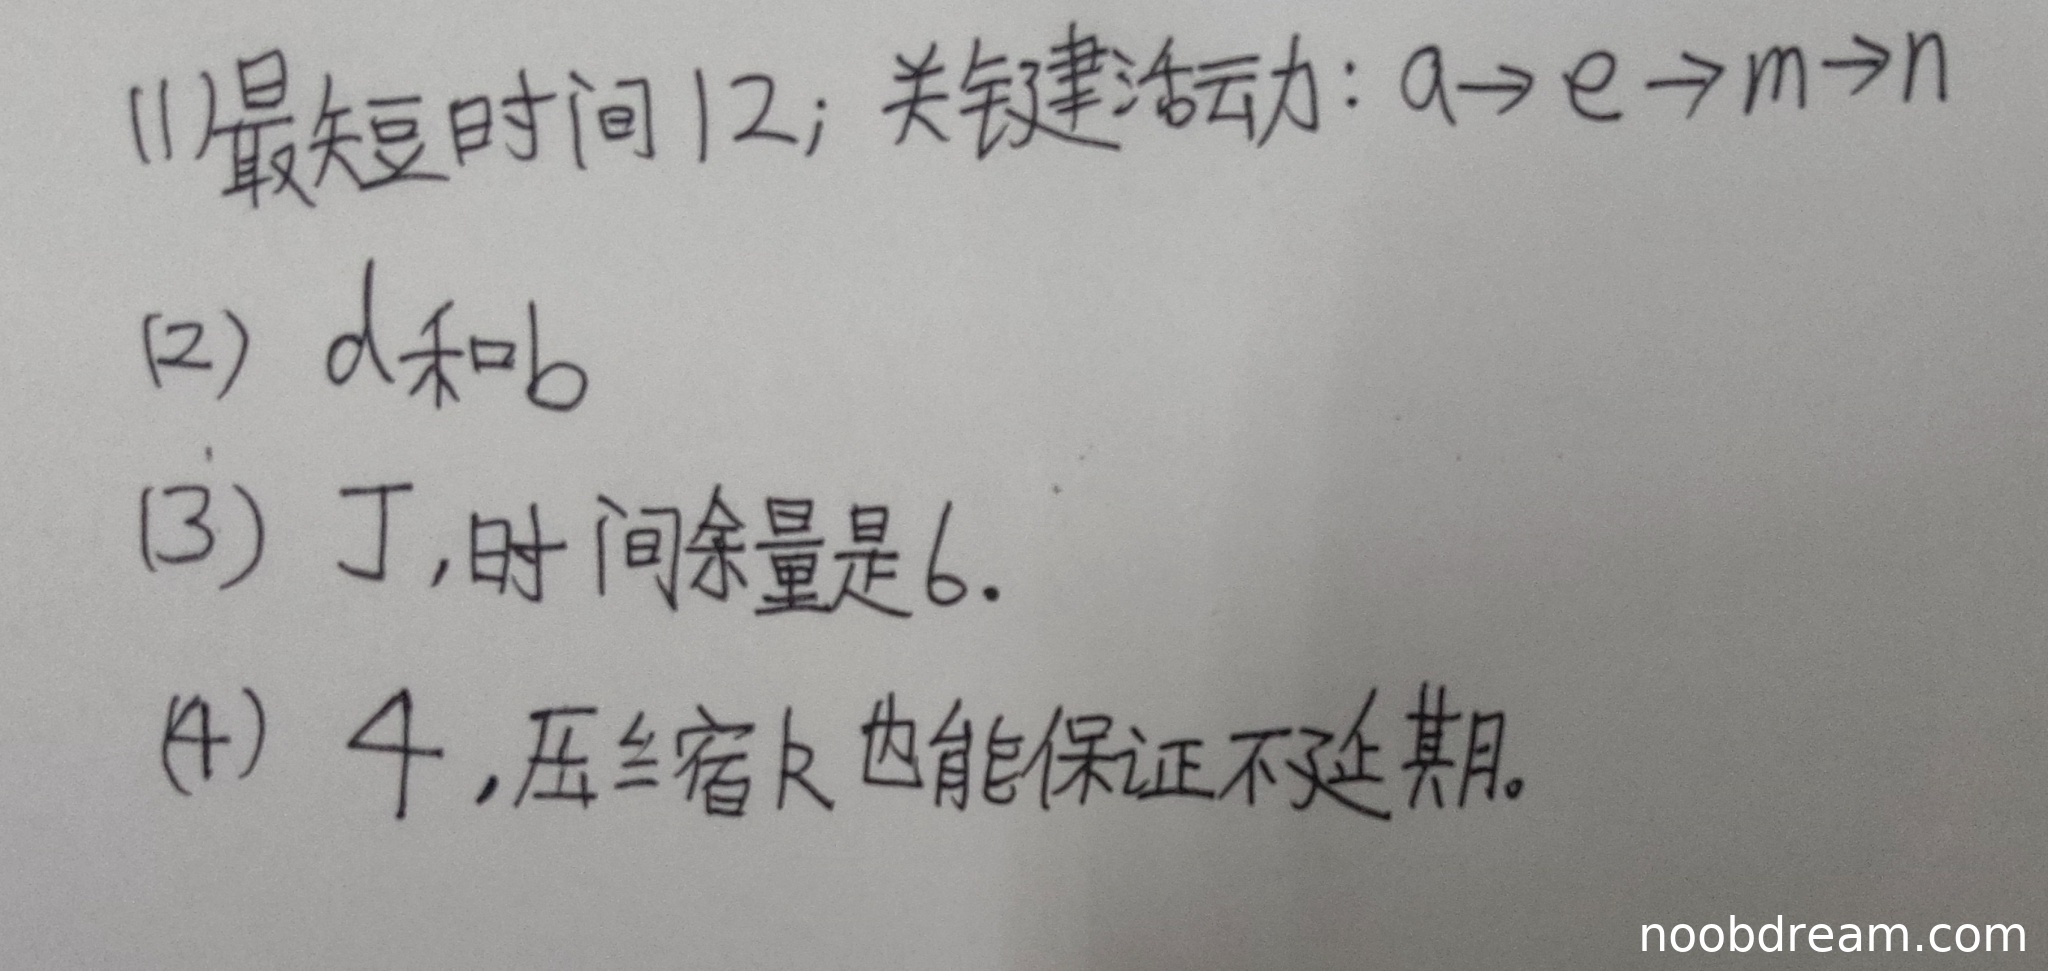 (1)最短时间12; 关键活动力: a→e→m→n
(2) d和b
(3) 丁,时间余量是6.
(4) 4,压缩k也能保证不延期。
noobdream.com